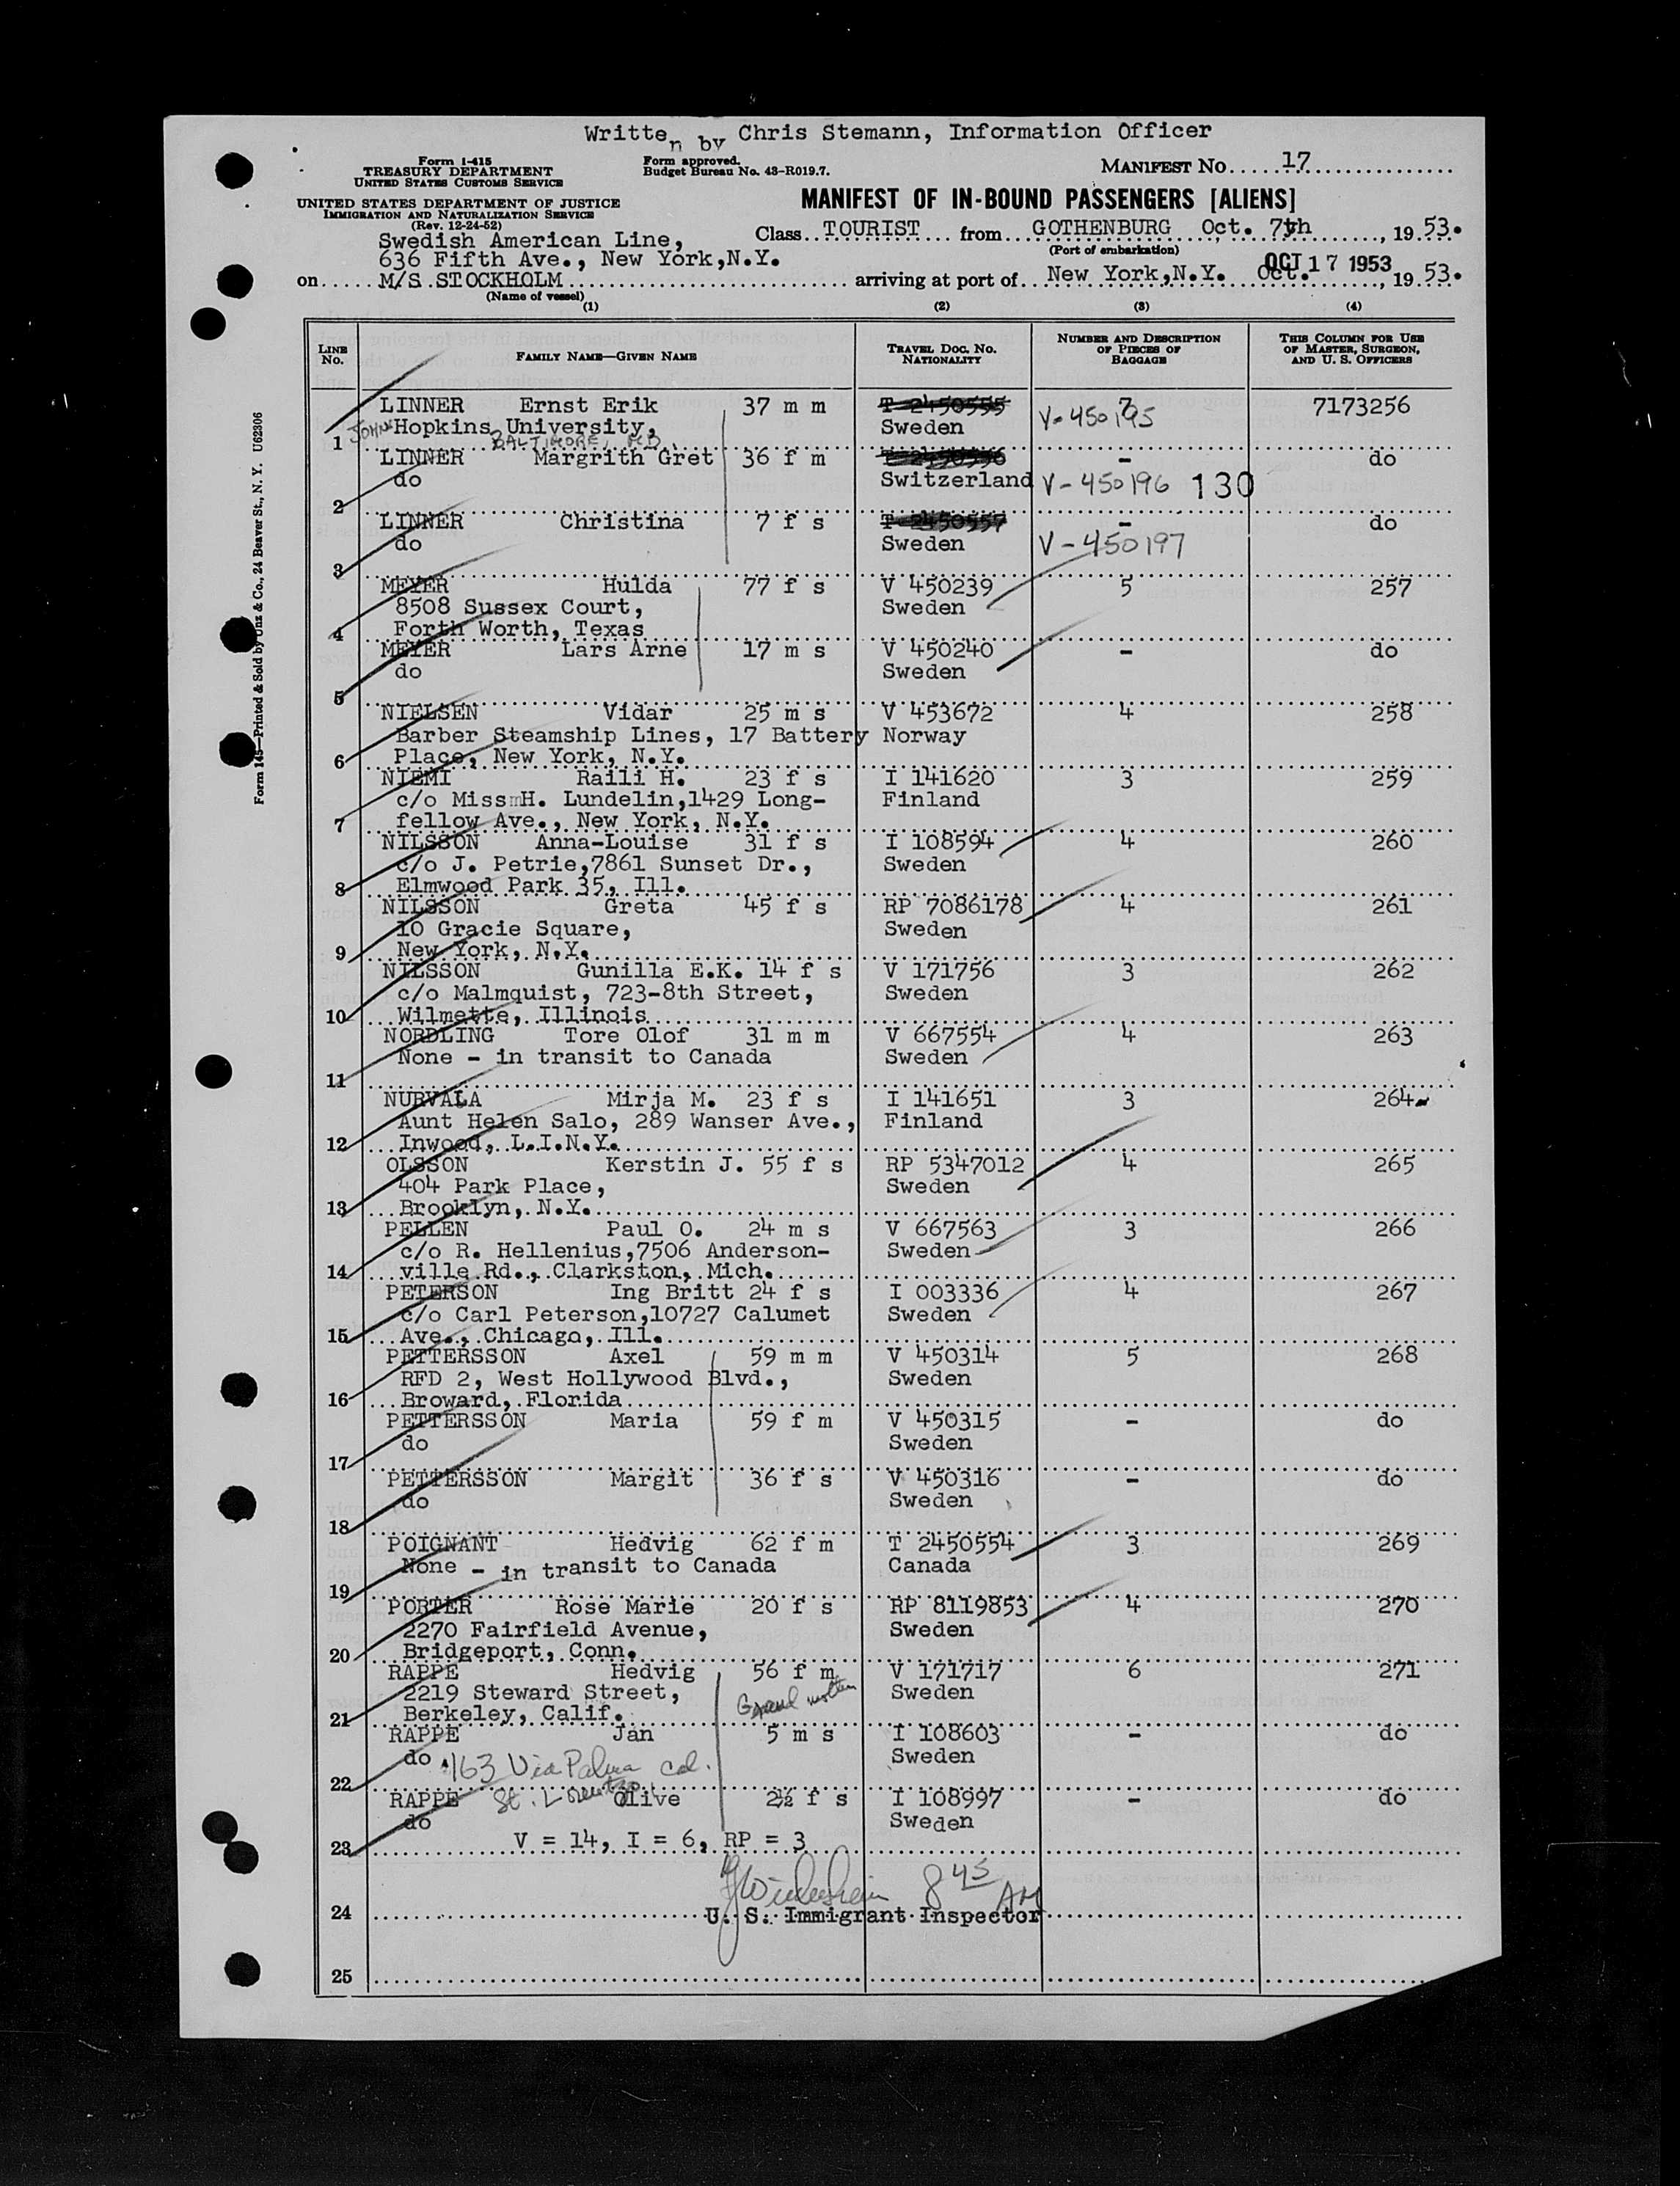 Written by Chris Stemann, Information Officer
Form 1-415
TREASURY DEPARTMENT
UNITED STATES CUSTOMS SERVICE
Form approved.
Budget Bureau No. 43-R019.7.
MANIFEST NO..... 17
UNITED STATES DEPARTMENT OF JUSTICE
IMMIGRATION AND NATURALIZATION SERVICE
(Rev. 12-24-52)
MANIFEST OF IN-BOUND PASSENGERS [ALIENS]
Swedish American Line,
636 Fifth Ave., New York,N.Y.
Class TOURIST from GOTHENBURG Oct. 7th, 19 53.
(Port of embarkation)
on M/S STOCKHOLM arriving at port of New York,N.Y. Oct. OCT 17 1953, 19 53.
(Name of vessel)
(1) (2) (3) (4)
LINE NO. FAMILY NAME—GIVEN NAME TRAVEL DOC. NO. NATIONALITY NUMBER AND DESCRIPTION OF PIECES OF BAGGAGE THIS COLUMN FOR USE OF MASTER, SURGEON, AND U. S. OFFICERS
LINNER Ernst Erik 37 m m T 2450555 7 V-450195 7173256
JOHNS Hopkins University, Sweden
1 BALTIMORE, MD.
LINNER Margrith Gret 36 f m T 2450556 - do
do Switzerland V-450196 130
2
LINNER Christina 7 f s T 2450557 - do
do Sweden V-450197
3
MEYER Hulda 77 f s V 450239 5 257
8508 Sussex Court, Sweden
4 Forth Worth, Texas
MEYER Lars Arne 17 m s V 450240 - do
do Sweden
5
NIELSEN Vidar 25 m s V 453672 4 258
Barber Steamship Lines, 17 Battery Norway
6 Place, New York, N.Y.
NIEMI Raili H. 23 f s I 141620 3 259
c/o Miss H. Lundelin,1429 Long- Finland
7 fellow Ave., New York, N.Y.
NILSSON Anna-Louise 31 f s I 108594 4 260
c/o J. Petrie,7861 Sunset Dr., Sweden
8 Elmwood Park 35, Ill.
NILSSON Greta 45 f s RP 7086178 4 261
10 Gracie Square, Sweden
9 New York, N.Y.
NILSSON Gunilla E.K. 14 f s V 171756 3 262
c/o Malmquist, 723-8th Street, Sweden
10 Wilmette, Illinois
NORDLING Tore Olof 31 m m V 667554 4 263
None - in transit to Canada Sweden
11
NURVALA Mirja M. 23 f s I 141651 3 264
Aunt Helen Salo, 289 Wanser Ave., Finland
12 Inwood, L.I.N.Y.
OLSSON Kerstin J. 55 f s RP 5347012 4 265
404 Park Place, Sweden
13 Brooklyn, N.Y.
PELLEN Paul O. 24 m s V 667563 3 266
c/o R. Hellenius,7506 Anderson- Sweden
14 ville Rd., Clarkston, Mich.
PETERSON Ing Britt 24 f s I 003336 4 267
c/o Carl Peterson,10727 Calumet Sweden
15 Ave., Chicago, Ill.
PETTERSSON Axel 59 m m V 450314 5 268
RFD 2, West Hollywood Blvd., Sweden
16 Broward, Florida
PETTERSSON Maria 59 f m V 450315 - do
do Sweden
17
PETTERSSON Margit 36 f s V 450316 - do
do Sweden
18
POIGNANT Hedvig 62 f m T 2450554 3 269
None - in transit to Canada Canada
19
PORTER Rose Marie 20 f s RP 8119853 4 270
2270 Fairfield Avenue, Sweden
20 Bridgeport, Conn.
RAPPE Hedvig 56 f m V 171717 6 271
2219 Steward Street, Grand mother Sweden
21 Berkeley, Calif.
RAPPE Jan 5 m s I 108603 - do
do 163 Via Palma Cal. Sweden
22
RAPPE St. Lorenzo Olive 2½ f s I 108997 - do
do Sweden
23 V = 14, I = 6, RP = 3
8 45 AM
24 U. S. Immigrant Inspector
25
Form 145—Printed & Sold by Unz & Co., 24 Beaver St., N. Y. U62306